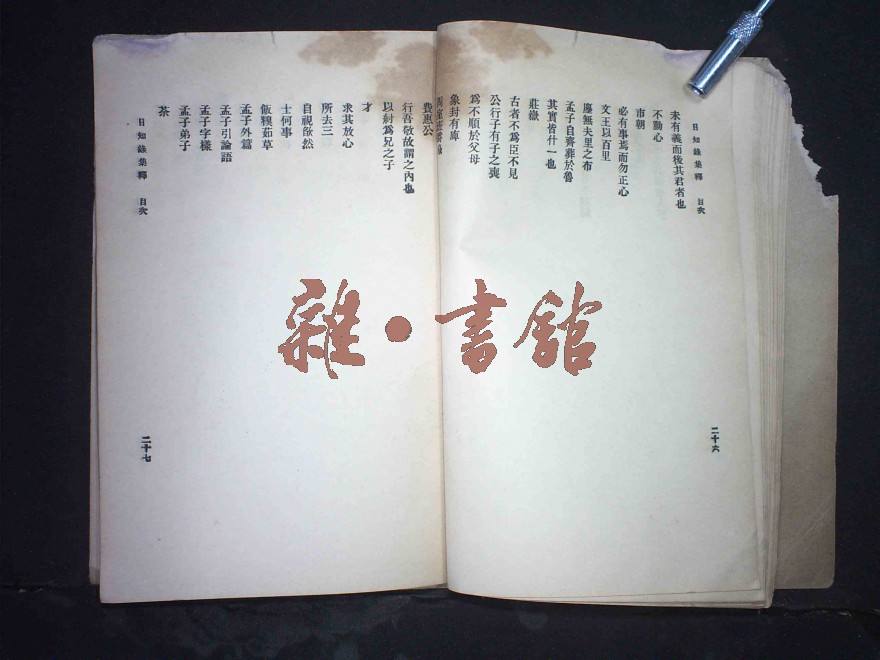 日知錄集釋 目次
未有義而後其君者也
不動心
市朝
必有事焉而勿正心
文王以百里
廛無夫里之布
孟子自齊葬於魯
其實皆什一也
莊嶽
古者不爲臣不見
公行子有子之喪
爲不順於父母
象封有庳
二十六
費惠公
行吾敬故謂之內也
以紂爲兄之子
才
求其放心
所去三
自視欿然
士何事
飯糗茹草
孟子外篇
孟子引論語
孟子字樣
孟子弟子
茶
日知錄集釋 目次
二十七
雜·書館